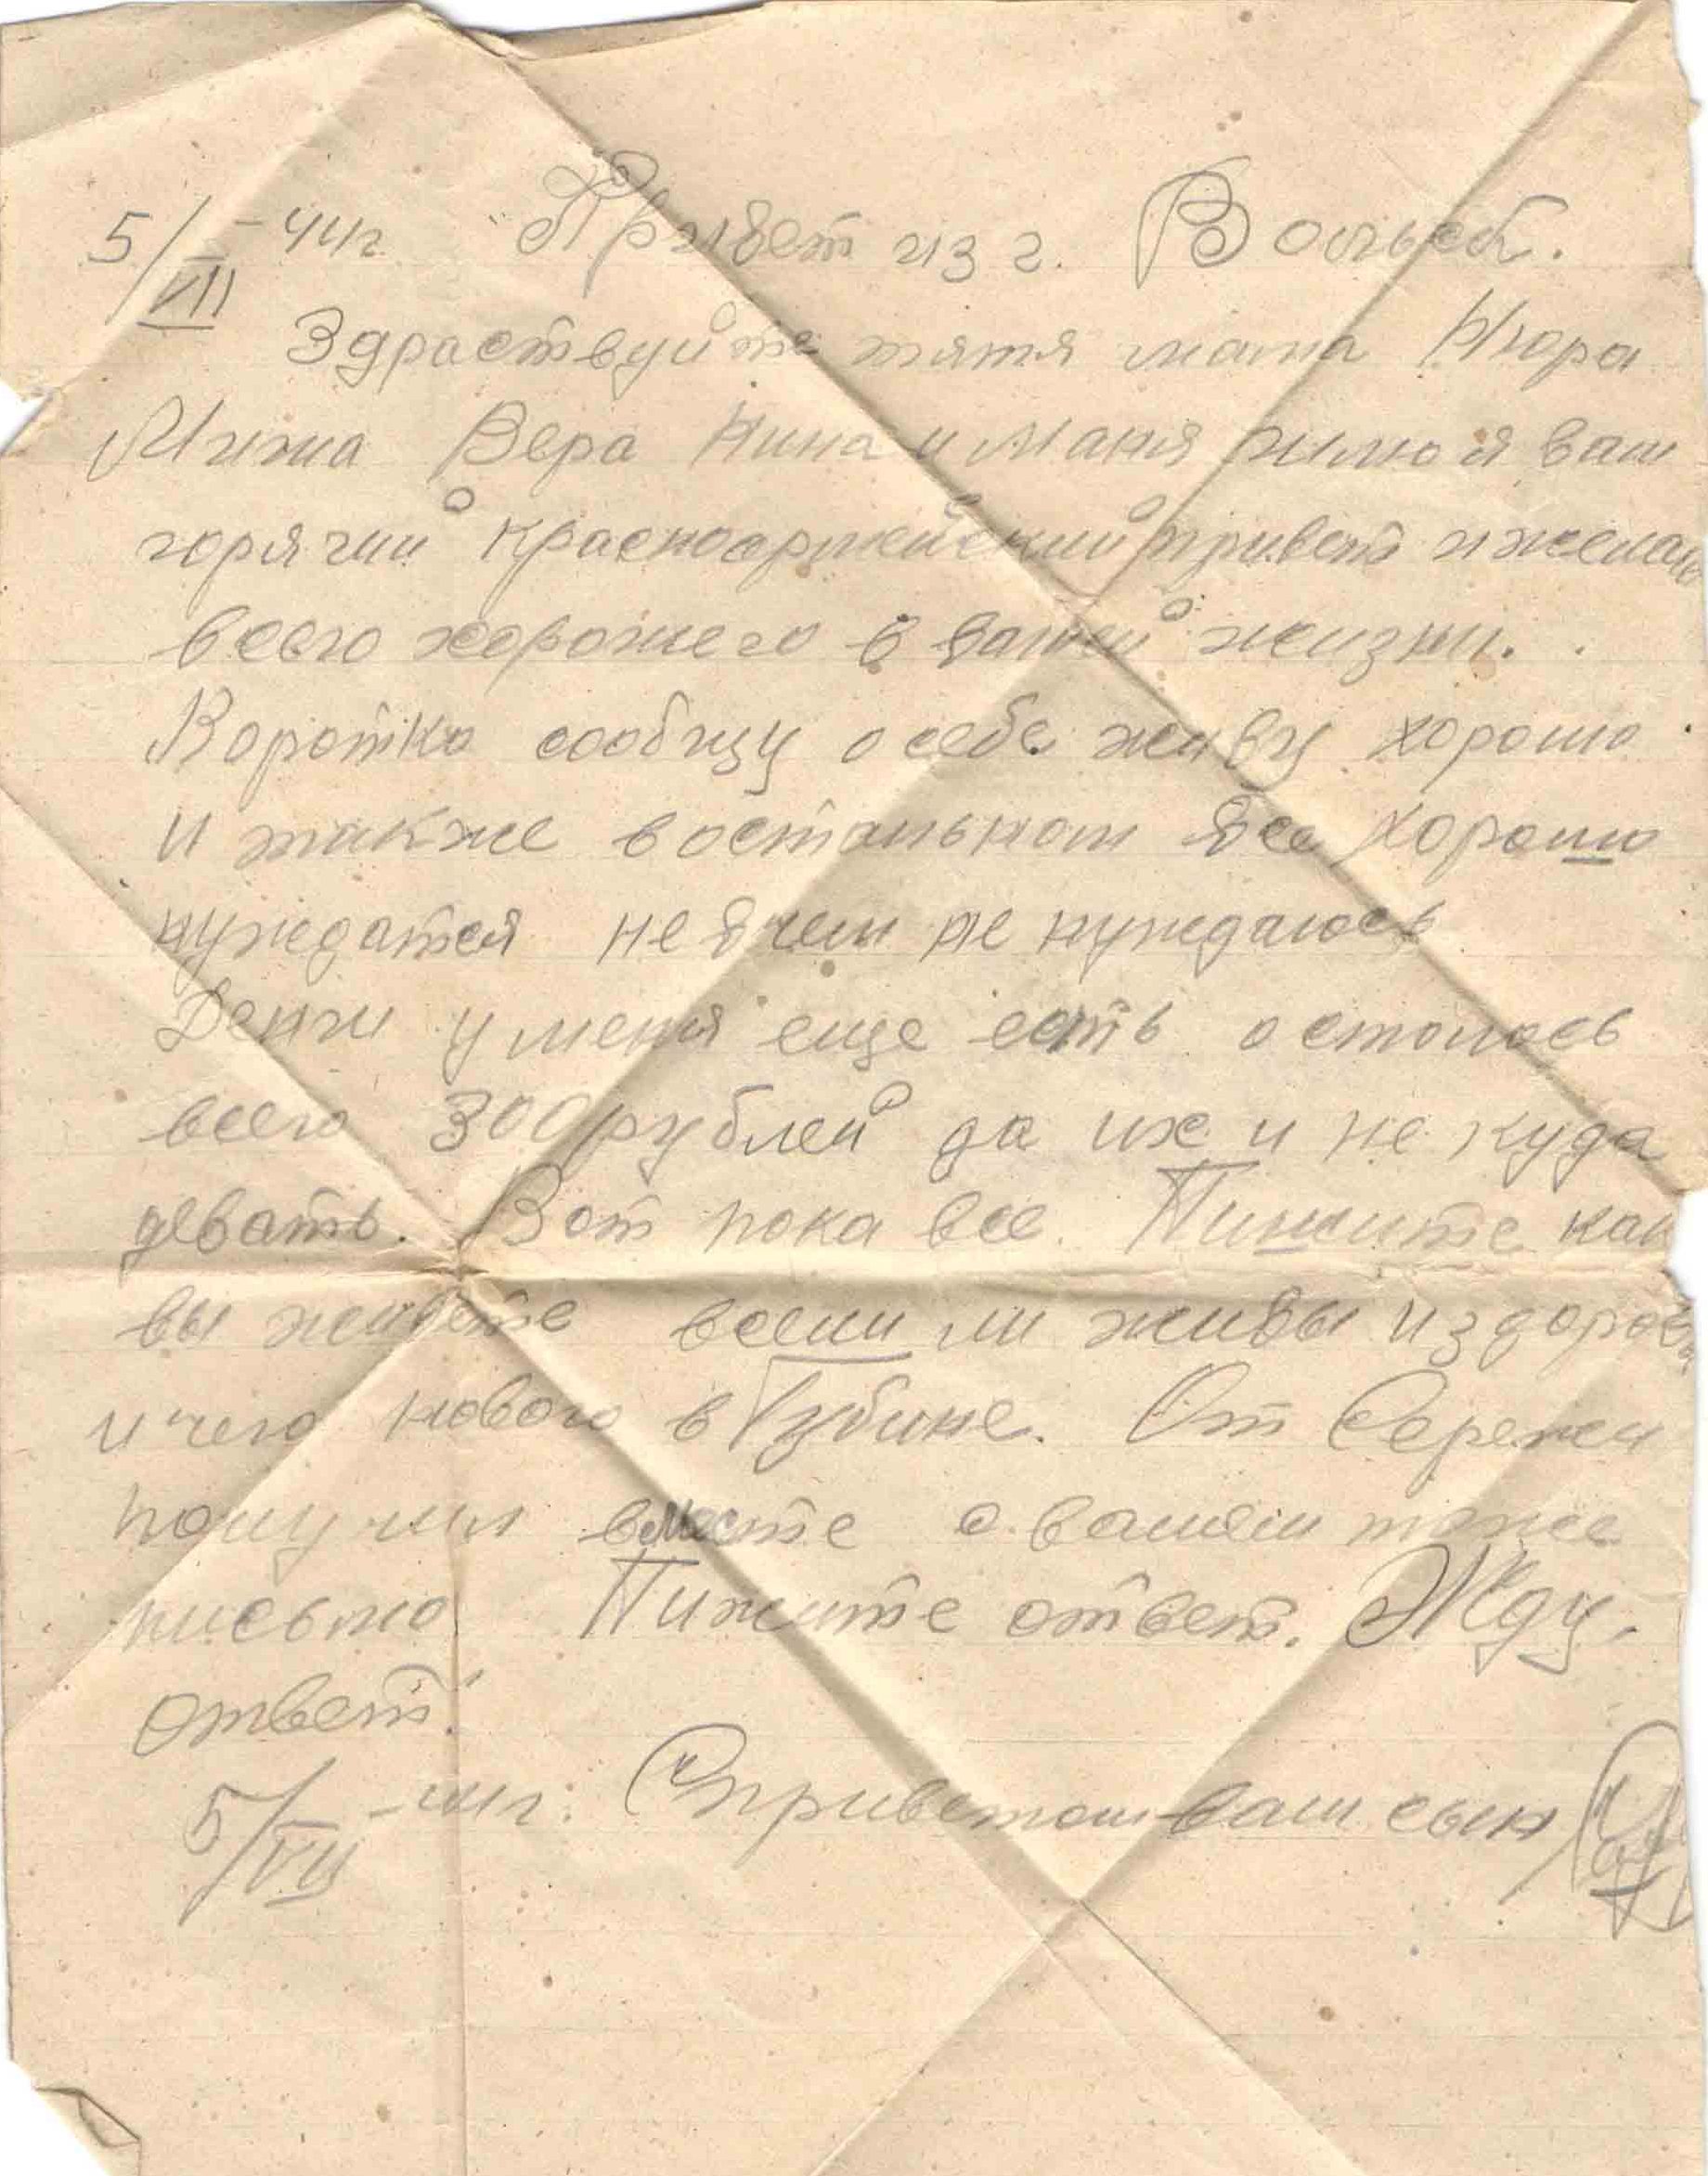 5/VII-44г. "Привет из г. Вольск.
Здраствуйте тятя мама Нюра
Миша Вера Нина и Маня шлю я вам
горячий красноармейский привет и желаю
всего хорошего в вашей жизни.
Коротко сообщу о себе живу хорошо
и также востальном все хорошо
нуждатся не в чем не нуждаюсь
Денги у меня еще есть осталось
всего 300 рублей да их и не куда
девать. Вот пока все. Пишите как
вы живете всеми ли живы и здоровы
и чего нового в Губине. От Сережи
получил вместе с вашем тоже
письмо Пишите ответ. Жду.
ответ!
5/VII-44г. С приветом ваш сын